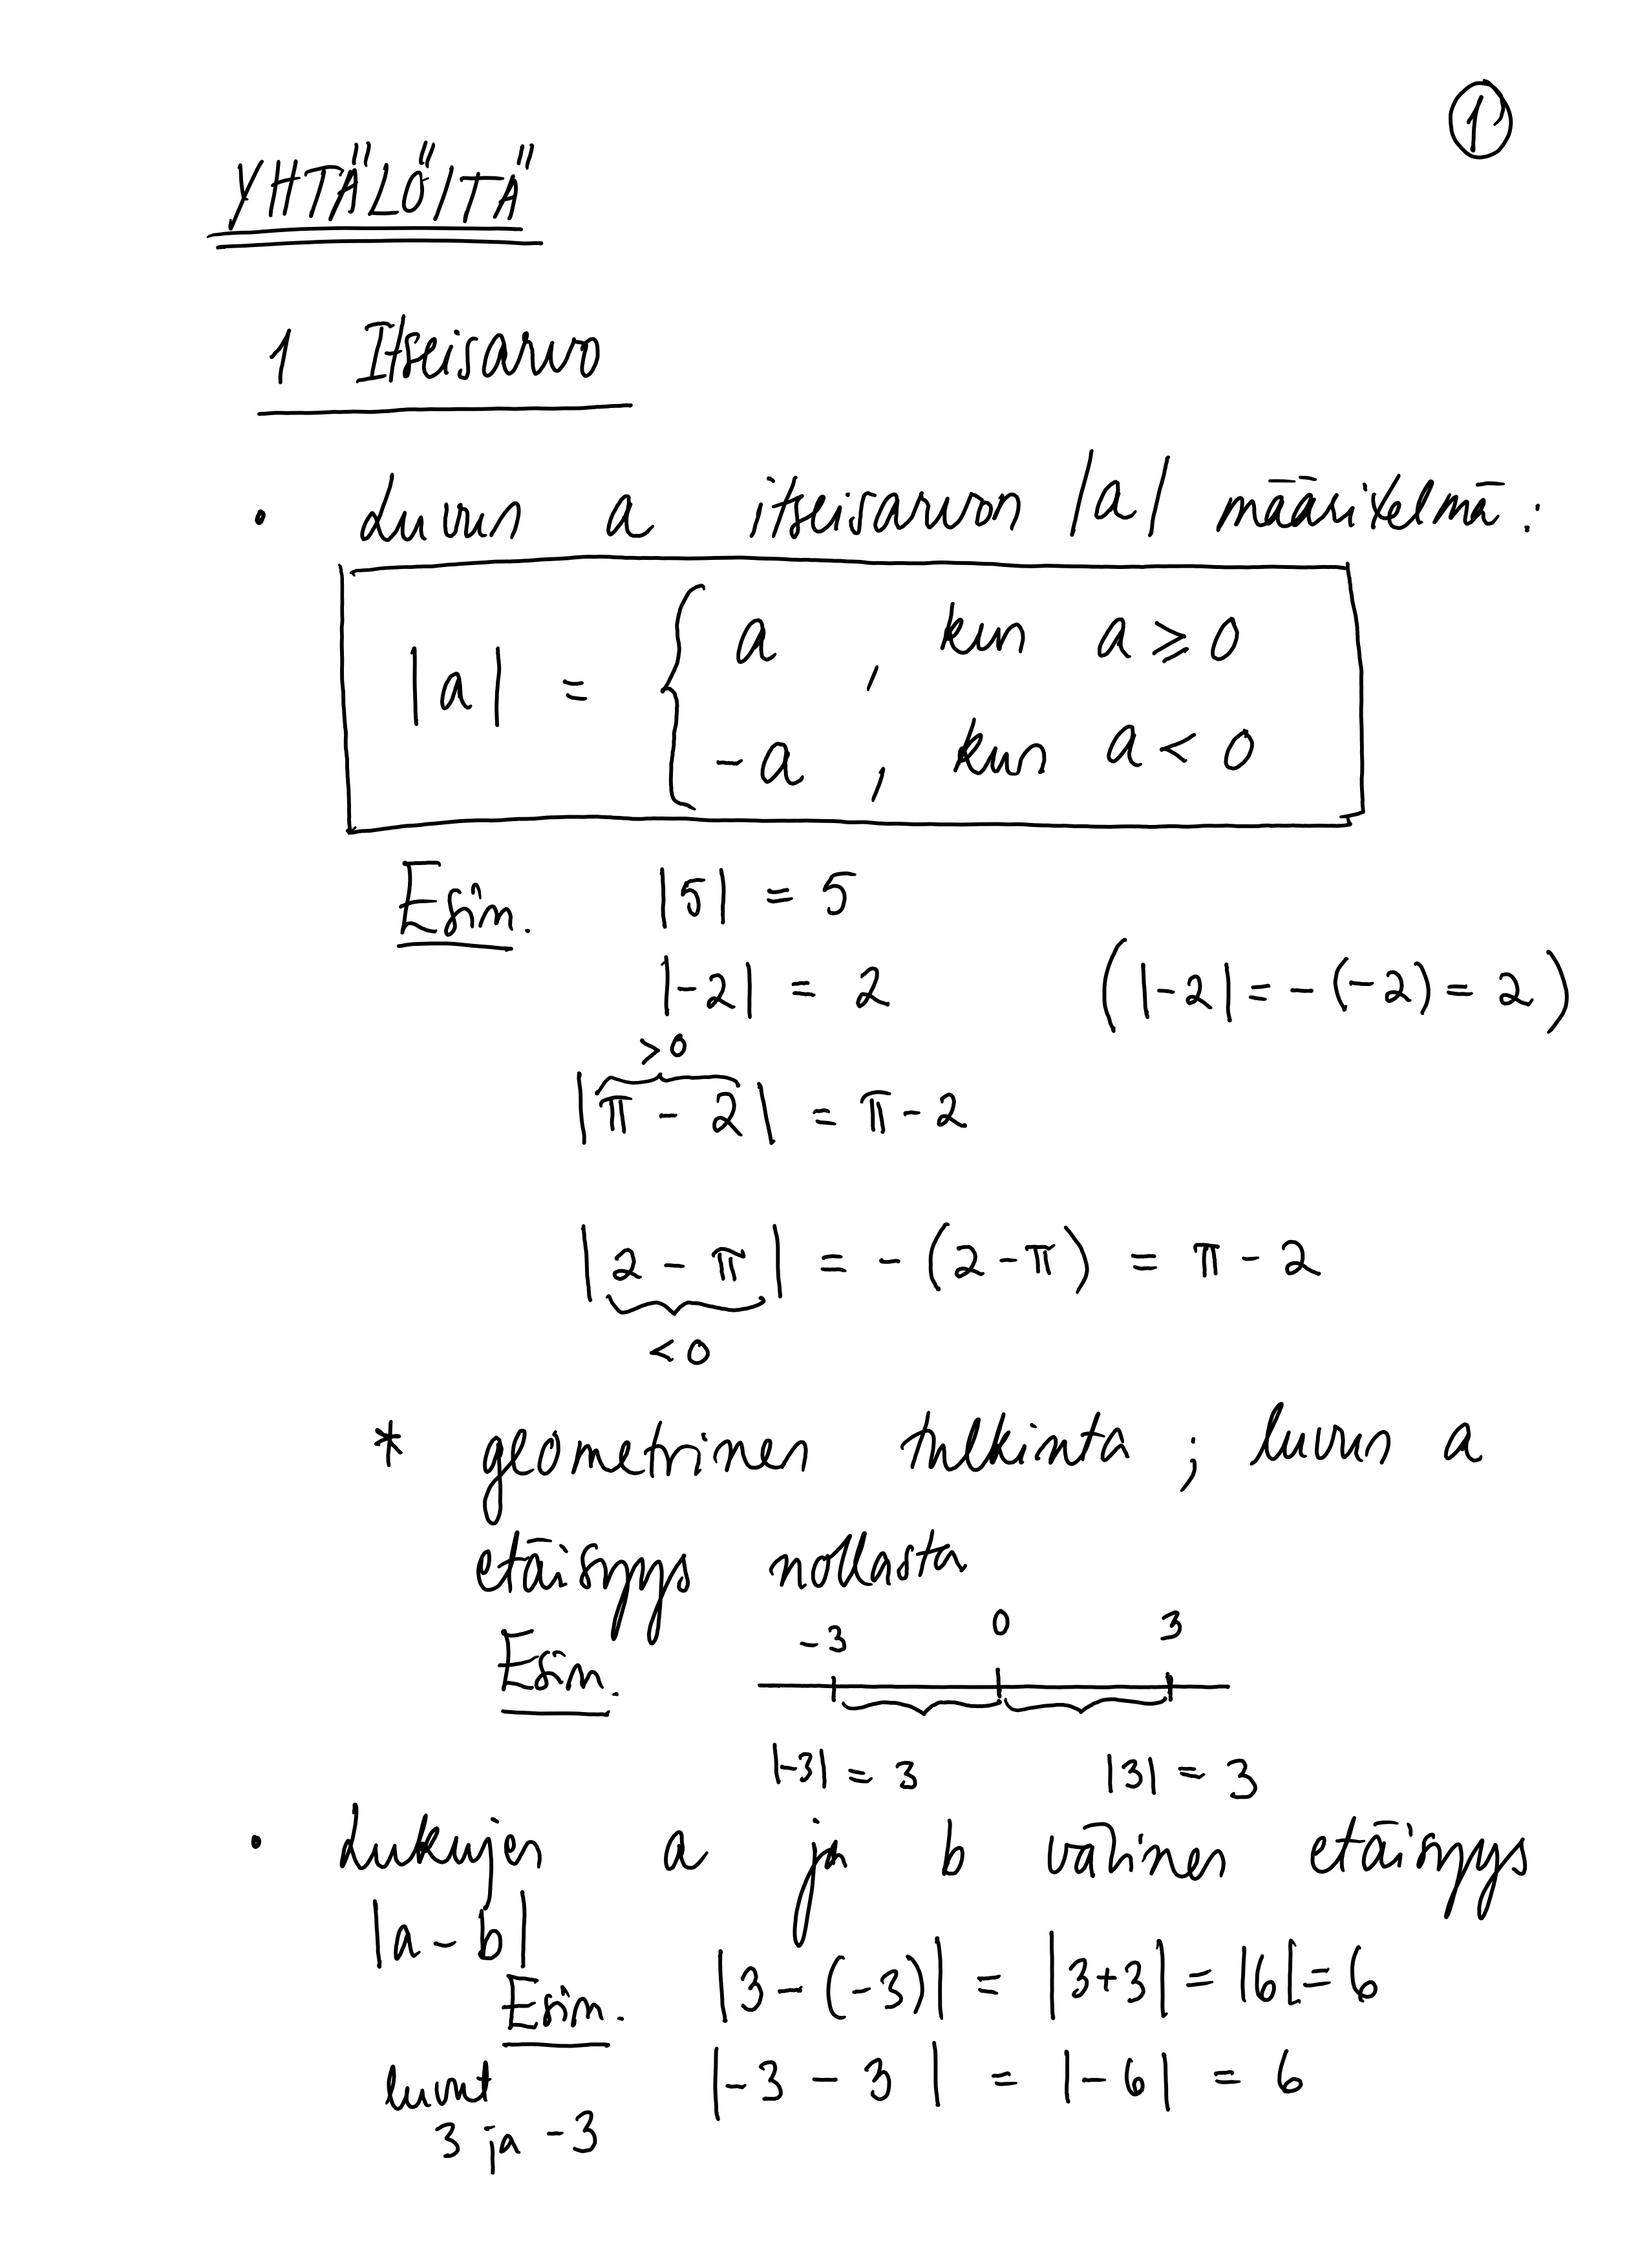 1
YHTÄLÖITÄ
1 Itseisarvo
• Luvun a itseisarvon |a| määritelmä:
|a| = { a , kun a ⩾ 0
-a , kun a < 0
Esim. |5| = 5
|-2| = 2 (|-2| = -(-2) = 2)
>0
|π - 2| = π - 2
|2 - π| = -(2 - π) = π - 2
<0
* geometrinen tulkinta ; luvun a
etäisyys nollasta
-3 0 3
Esim.
|-3| = 3 |3| = 3
• Lukujen a ja b välinen etäisyys
|a - b|
Esim. |3 - (-3)| = |3+3| = |6| = 6
luvut |-3 - 3| = |-6| = 6
3 ja -3